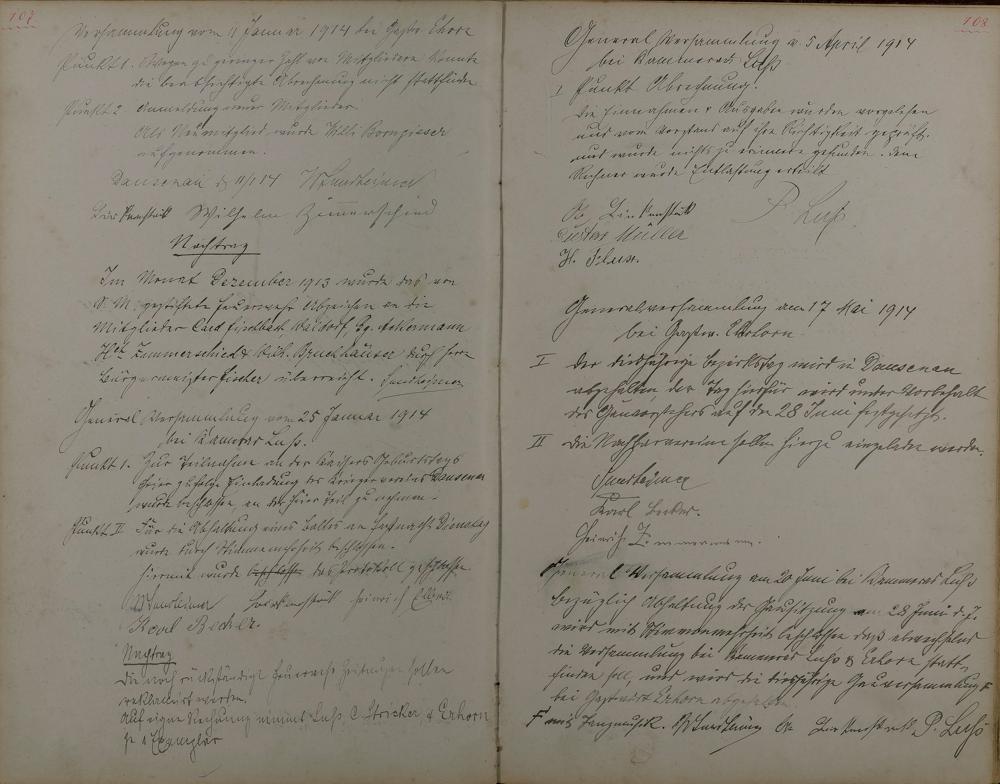 107
Versammlung vom 11 Januar 1914 bei Gastw. Ehorn
Punkt 1. Wegen zu geringer Zahl von Mitgliedern konnte
die beabsichtigte Abrechnung nicht stattfinden
Punkt 2 Anmeldung neuer Mitglieder.
Als Neumitglied wurde Willi
aufgenommen.
Dausenau d. 11/1 14
Wilhelm Zimmerschied
Nachtrag
Im Monat Dezember 1913 wurde das von
S. M. gestiftete Feuerwehr Abzeichen an die
Mitglieder Carl Fischbach Ackermann
Zimmerschied & Wilh. Bruchhäuser durch Herrn
Bürgermeister Fischer überreicht.
General Versammlung vom 25 Januar 1914
bei Kamerad Luss.
Punkt 1. Zur Teilnahme an der Kaisers Geburtstags
feier zufolge Einladung des Kriegervereins Dausenau
wurde beschlossen, an der Feier teil zu nehmen.
Punkt II Für die Abhaltung eines Balles an Fastnacht Dienstag
wurde durch Stimmenmehrheit beschlossen.
Hiermit wurde beschlossen das Protokoll geschlossen
Heinrich
Karl Becker.
Nachtrag
Die noch rückständige Feuerwehr Zeitungen sollen
reklamiert werden.
Auf eigne Rechnung nimmt Luss, C. Stricker & Erhorn
je 1 Exemplar
108
General Versammlung v. 5 April 1914
bei Kamerad Luss
I Punkt Abrechnung.
Die Einnahmen & Ausgaben wurden vorgelesen
und vom Vorstand auf ihre Richtigkeit geprüft.
und wurde nichts zu erinnern gefunden. Dem
Rechner wurde Entlastung erteilt
P. Luss
Gustav Müller
H.
Generalversammlung am 17 Mai 1914
bei Gastw. Erhorn
I Der diesjährige Bezirkstag wird in Dausenau
abgehalten der Tag hierfür wird unter Vorbehalt
des Gauvorstehers auf den 28 Juni festgesetzt.
II Die Nachbarvereine sollen hierzu eingeladen werden.
Karl Becker.
Heinrich Zimmermann.
General Versammlung am 20 Juni bei Kamerad Luss
Bezüglich Abhaltung der Gausitzung am 28 Juni d. J.
wird mit Stimmenmehrheit beschlossen daß abwechselnd
die Versammlung bei Kamerad Luss & Erhorn statt-
finden soll, und wird die diesjährige Gauversammlung F
bei Gastwirt Erhorn abgehalten.
F mit Tanzmusik. P. Luss